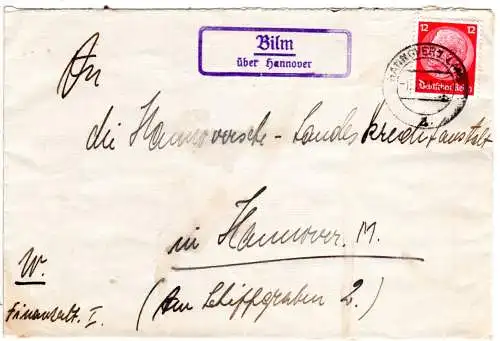 Bilm
über Hannover
12 12
Deutsches Reich
HANNOVER
An
die Hannoversche - Landeskreditanstalt
in Hannover. M.
W.
(Am Schiffgraben 2.)
Finanzabt. I.